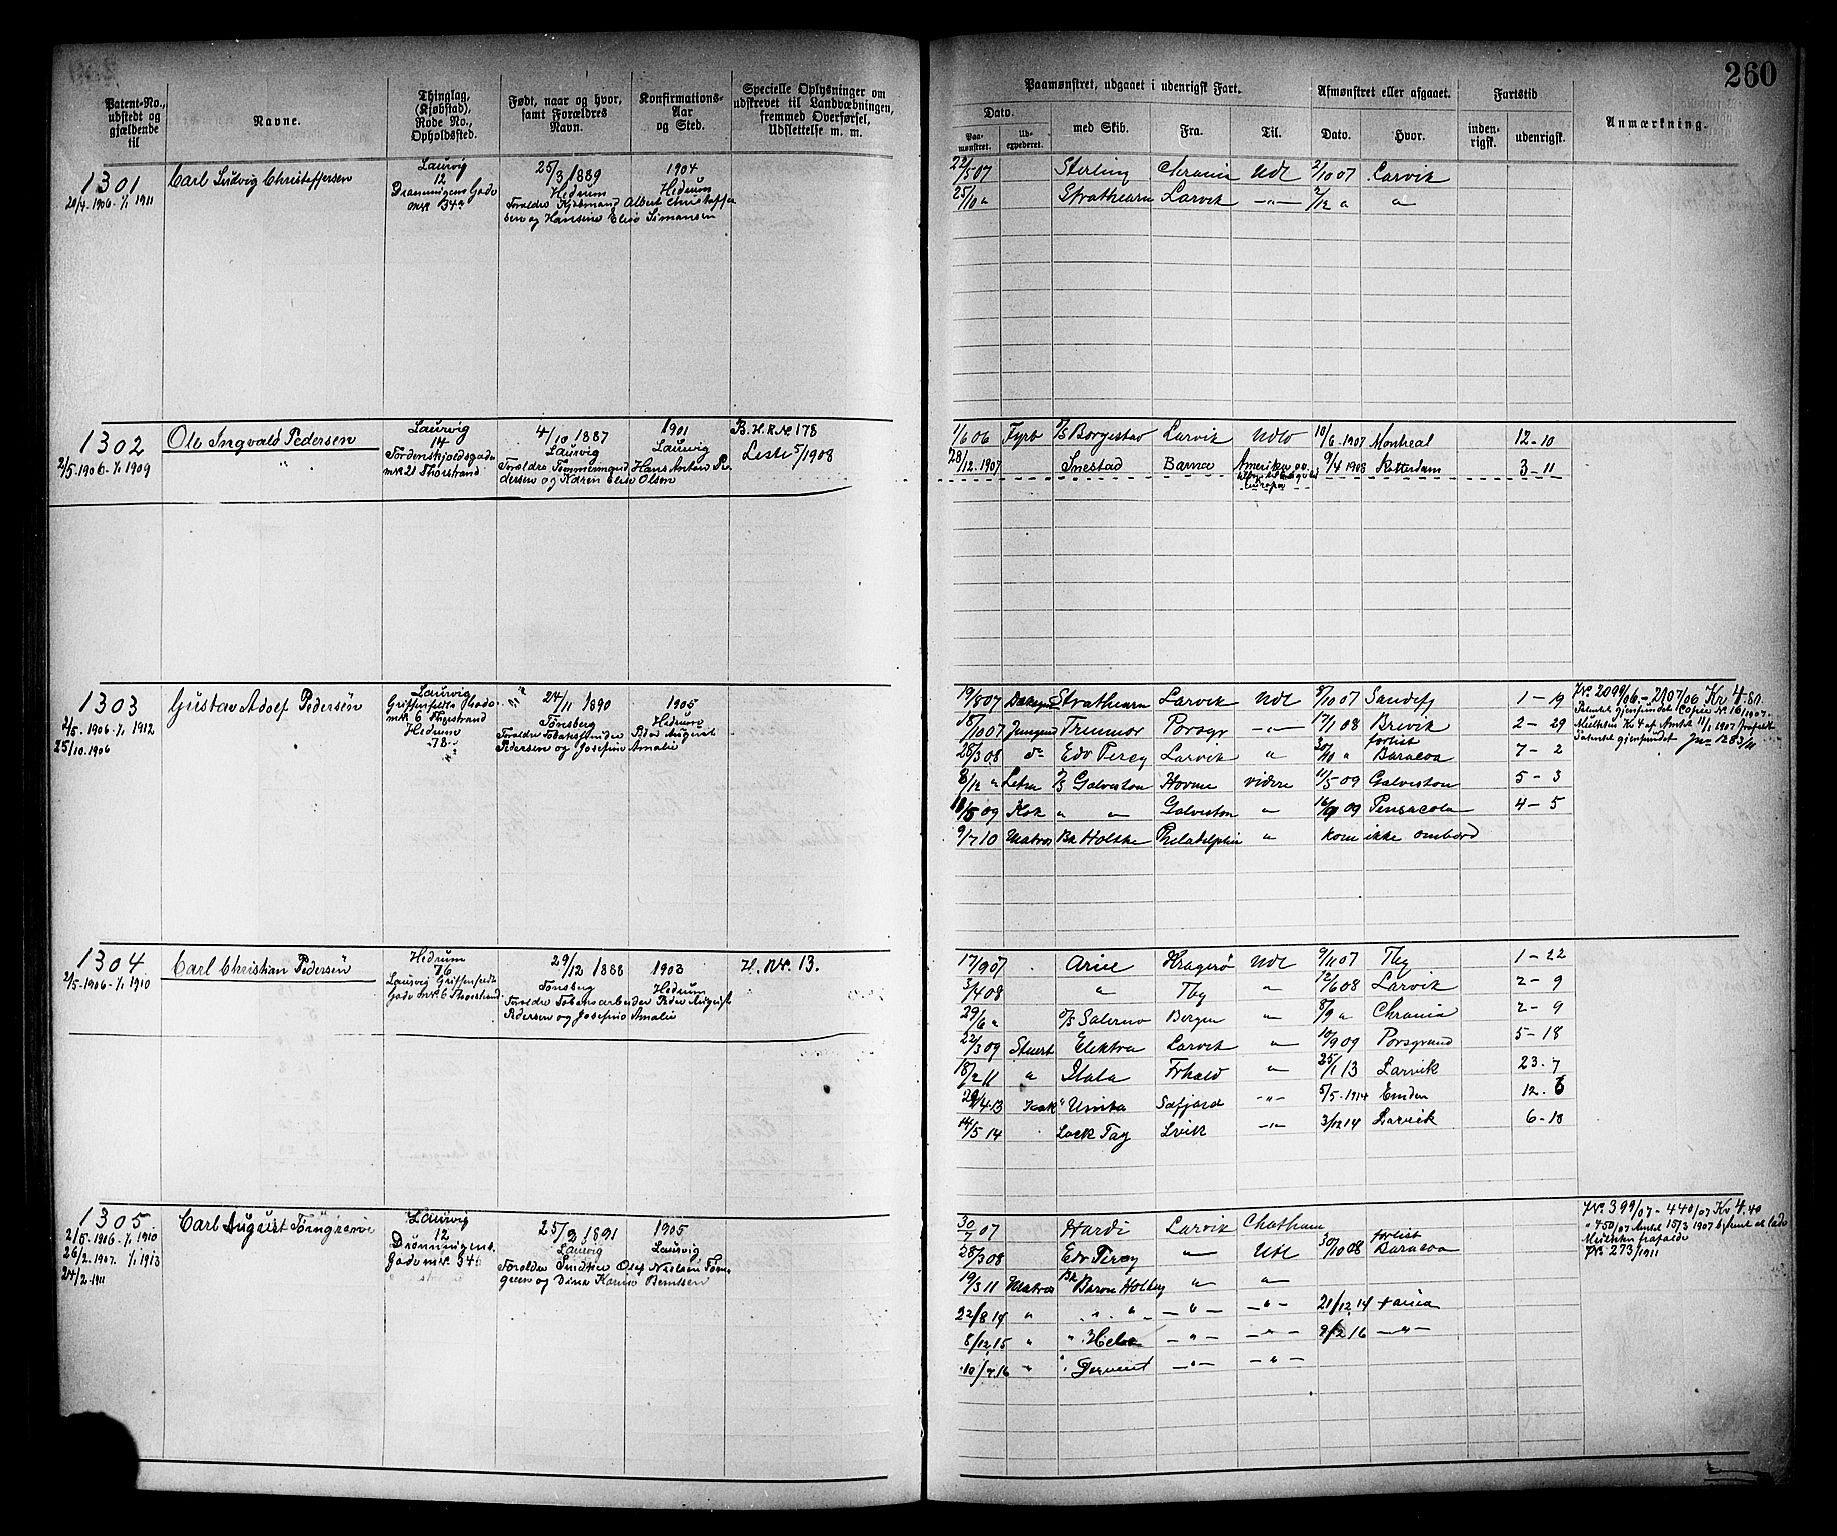 260
Patent-No., udstedt og gjældende til
Navne.
Thinglag, (Kjøbstad), Rode No., Opholdssted.
Født, naar og hvor, samt Forældres Navn.
Konfirmations-Aar og Sted.
Specielle Oplysninger om udskrevet til Landvæbningen, fremmed Overførsel, Udslettelse m. m.
Paamønstret, udgaaet i udenrigsk Fart.
Dato.
Paamønstret.
Udexpederet.
med Skib.
Fra.
Til.
Afmønstret eller afgaaet.
Dato.
Hvor.
Fartstid
indenrigsk.
udenrigsk.
Anmærkning.
1301
20/4-1906-1/1 1911
Carl Ludvig Christoffersen
Laurvig
12
Dronningens Gade
mk 34a
25/3 1889
Hedrum
1904
Hedrum
Forældre Kjøbmand Albert Christoffer
sen og Hansine Elise Simonsen
22/5 07 Sterling Chrania Udl 2/10 07 Larvik
25/10 " Strathearn Larvik -"- 2/12 " "
1302
2/5-1906-1/1 1909
Ole Ingvald Pedersen
"
Laurvig
14
Tordenskjoldsgade
mk 21 Thorstrand
4/10 1887
Laurvig
1901
Laurvig
Forældre Tømmermand Hans Anton Pe
dersen og Karen Elise Olsen
B.H.R.No 178
Leste 5/1908
1/6 06 Fyrb D/S Borgestad Larvik Udlo 10/6-1907 Montreal 12-10
28/12.1907 Snestad Barna Amerika og 9/4 1908 Rotterdam 3-11
Europa
1303
2/5-1906-1/1 1912
25/10.1906
Gustav Adolf Pedersen
Laurvig
Griffenfelds Gade
mk 6 Thorstrand
Hedrum
78
24/11 1890
Tønsberg
1905
Hedrum
Forældre Peder August
Pedersen og Josefine Amalie
19/8 07 Dæksgut Strathearn Larvik Udl 8/10 07 Sandefj 1-19
18/10 07 Jungmd Trimmor Porsgr -"- 17/1 08 Brevik 2-29
28/3 08 do Edv Percy Larvik " 30/10 " forlist Baracoa 7-2
8/12 " Letm D/S Galveston Hovme videre 11/5 09 Galveston 5-3
11/5 09 Kok " " Galveston " 16/9 09 Pensacola 4-5
9/7 10 Matros Bk Holthe Philadelphia " kom ikke ombord
J.No. 2099/06-2107/06 Kr 4.80
Patentet gjenfundet
1304
2/5-1906-1/1 1910
Carl Christian Pedersen
Hedrum
76
Laurvig Griffenfelds
Gade mk 6 Thorstrand
29/12 1888
Tønsberg
1903
Hedrum
Forældre Tobaksarbeider Peder August
Pedersen og Josefine Amalie
H. R.Nr. 13.
17/9 07 Arne Kragerø Udl 9/11 07 Tbg 1-22
3/4 08 " Tbg " 12/6 08 Larvik 2-9
29/6 " D/S Salerno Bergen " 8/9 " Chrania 2-9
22/3 09 Stuert Elektra Larvik " 10/9 09 Porsgrund 5-18
18/2 11 " Frhald " 25/1 13 Larvik 23.7
29/4.13 Kok " Unita Søfjord -"- 5/5-1914 Emden 12.6
14/5 14 Lock Tay Lvik -"- 3/12 14 Larvik 6-18
1305
2/5-1906-1/1 1910
26/2.1907. 1/1 1913
24/2.1911
Carl August Tørngreen
Laurvig
12
Dronningens.
Gade mk 34
25/9 1891
Laurvig
1905
Laurvig
Forældre Olaf Nielsen Tørn
green og Dina Karine Berntsen
30/7 07 Hardi Larvik Chatham
28/3 08 Edv Percy -"- Udl 30/10 08 forlist Baracoa
19/3 11 Matros Bk Baron Holberg " "
22/8 14 " " " -"- -"- 21/12.14
8/12.15 " " -"- -"- 9/2 16 -"-
10/7.16 " " Derwent -"- -"-
J.No. 399/07-440/07 Kr 4.40
" 450/07 Amtet 15/3 1907
J.No 273/1911